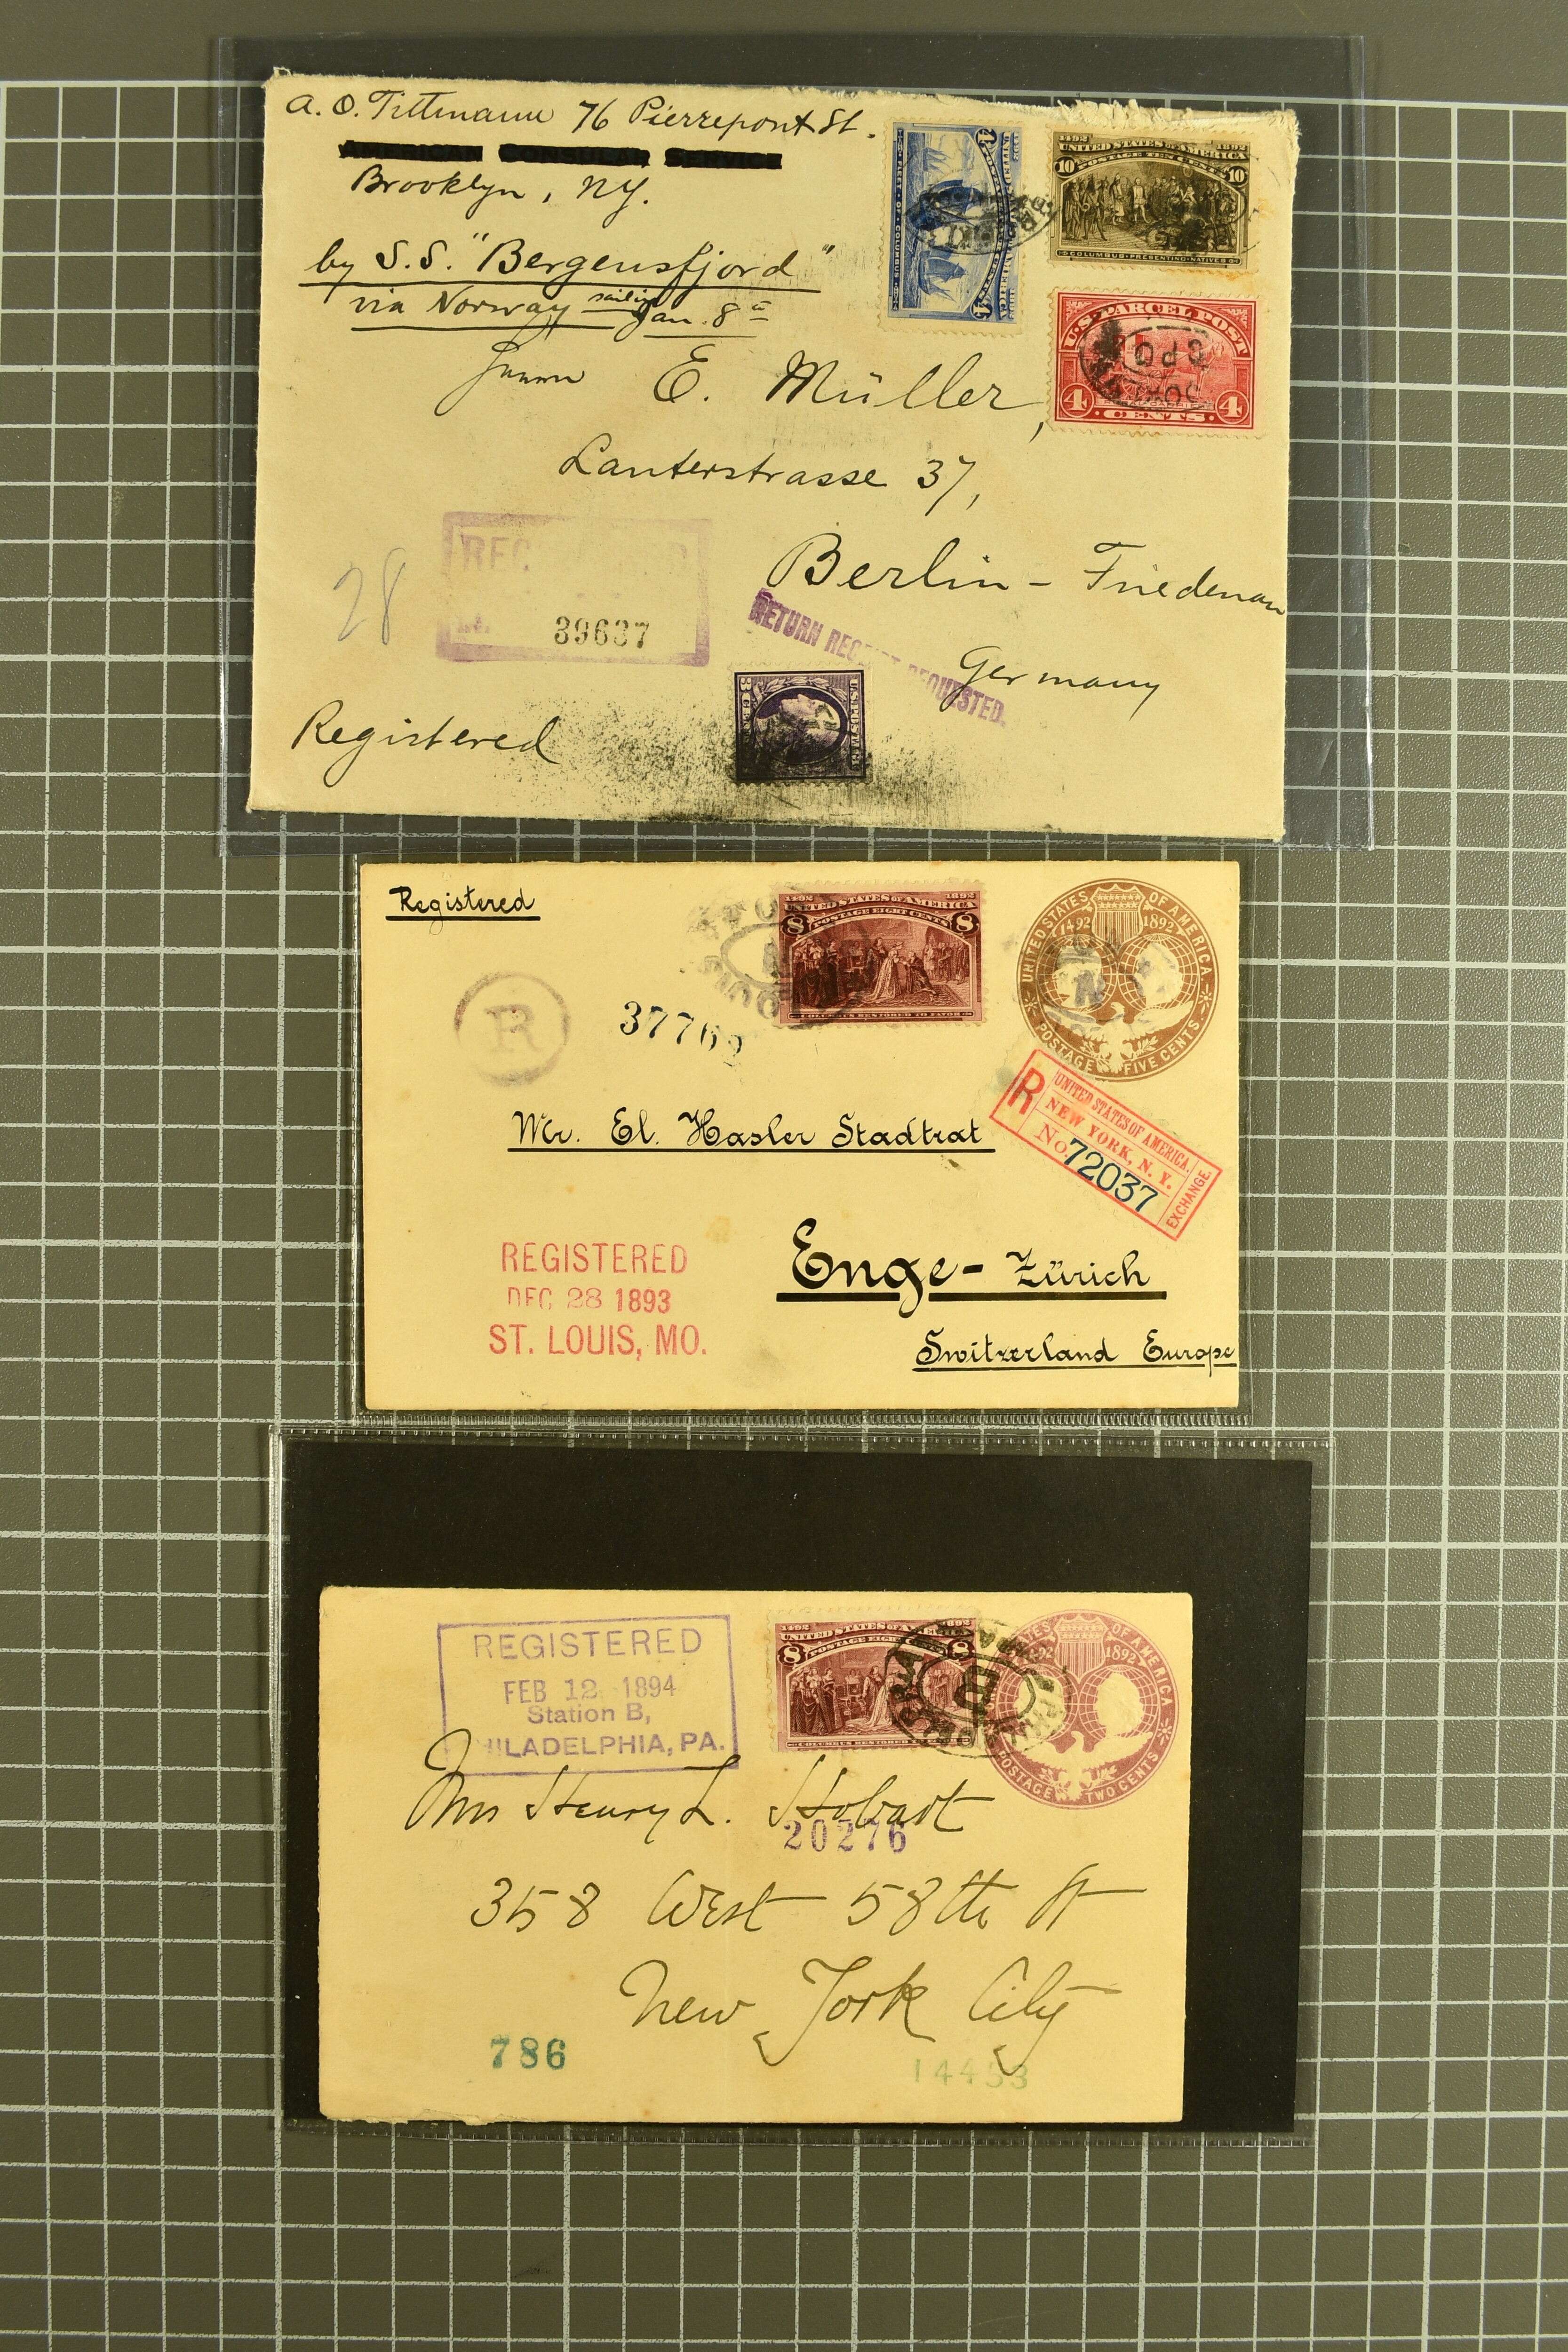 A. O. Tittmann 76 Pierrepont St.
AMERICAN CONSULAR SERVICE
Brooklyn, NY.
by S.S. "Bergensfjord"
via Norway sailing Jan. 8th
UNITED STATES OF AMERICA
FLEET OF COLUMBUS
1492 1892
UNITED STATES OF AMERICA
POSTAGE TEN CENTS
10 10
COLUMBUS PRESENTING NATIVES
U.S. PARCEL POST
GPO
4 CENTS 4
E. Müller,
Lauterstrasse 37,
Berlin - Friedenau
Germany
28
39637
RETURN RECEIPT REQUESTED.
Registered
U.S. POSTAGE
3 CENTS
Registered
1492 1892
UNITED STATES OF AMERICA
POSTAGE EIGHT CENTS
8 8
COLUMBUS RESTORED TO FAVOR
UNITED STATES OF AMERICA
1492 1892
POSTAGE FIVE CENTS
R
37762
R
UNITED STATES OF AMERICA.
NEW YORK, N. Y.
No. 72037
EXCHANGE.
Mr. El. Hasler Stadtrat
Enge - Zürich
Switzerland Europe
REGISTERED
DEC 28 1893
ST. LOUIS, MO.
REGISTERED
FEB 12 1894
Station B,
PHILADELPHIA, PA.
1492 1892
UNITED STATES OF AMERICA
POSTAGE EIGHT
8 8
COLUMBUS RESTORED
STATES OF AMERICA
1892
POSTAGE TWO CENTS
Mrs Henry L. Hobart
20276
358 West 58th St
New York City
786
14453